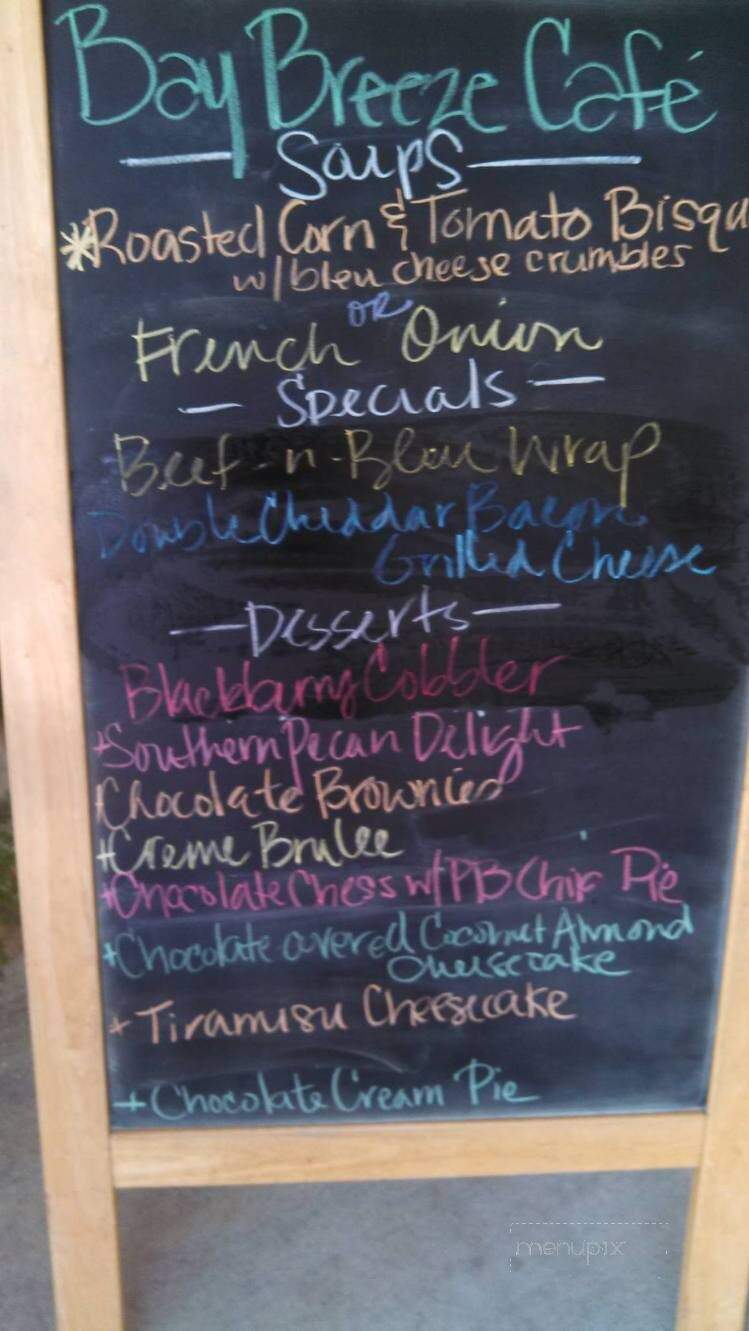 Bay Breeze Café
Soups
*Roasted Corn & Tomato Bisqu
w/bleu cheese crumbles
OR
French Onion
Specials
Beef-n-Bleu Wrap
Double Cheddar Bacon
Grilled Cheese
Desserts
Blackberry Cobbler
+Southern Pecan Delight
+Chocolate Brownies
+Creme Brulee
+Chocolate Chess w/PB Chip Pie
+Chocolate covered Coconut Almond
Cheesecake
+Tiramisu Cheesecake
+Chocolate Cream Pie
menupix